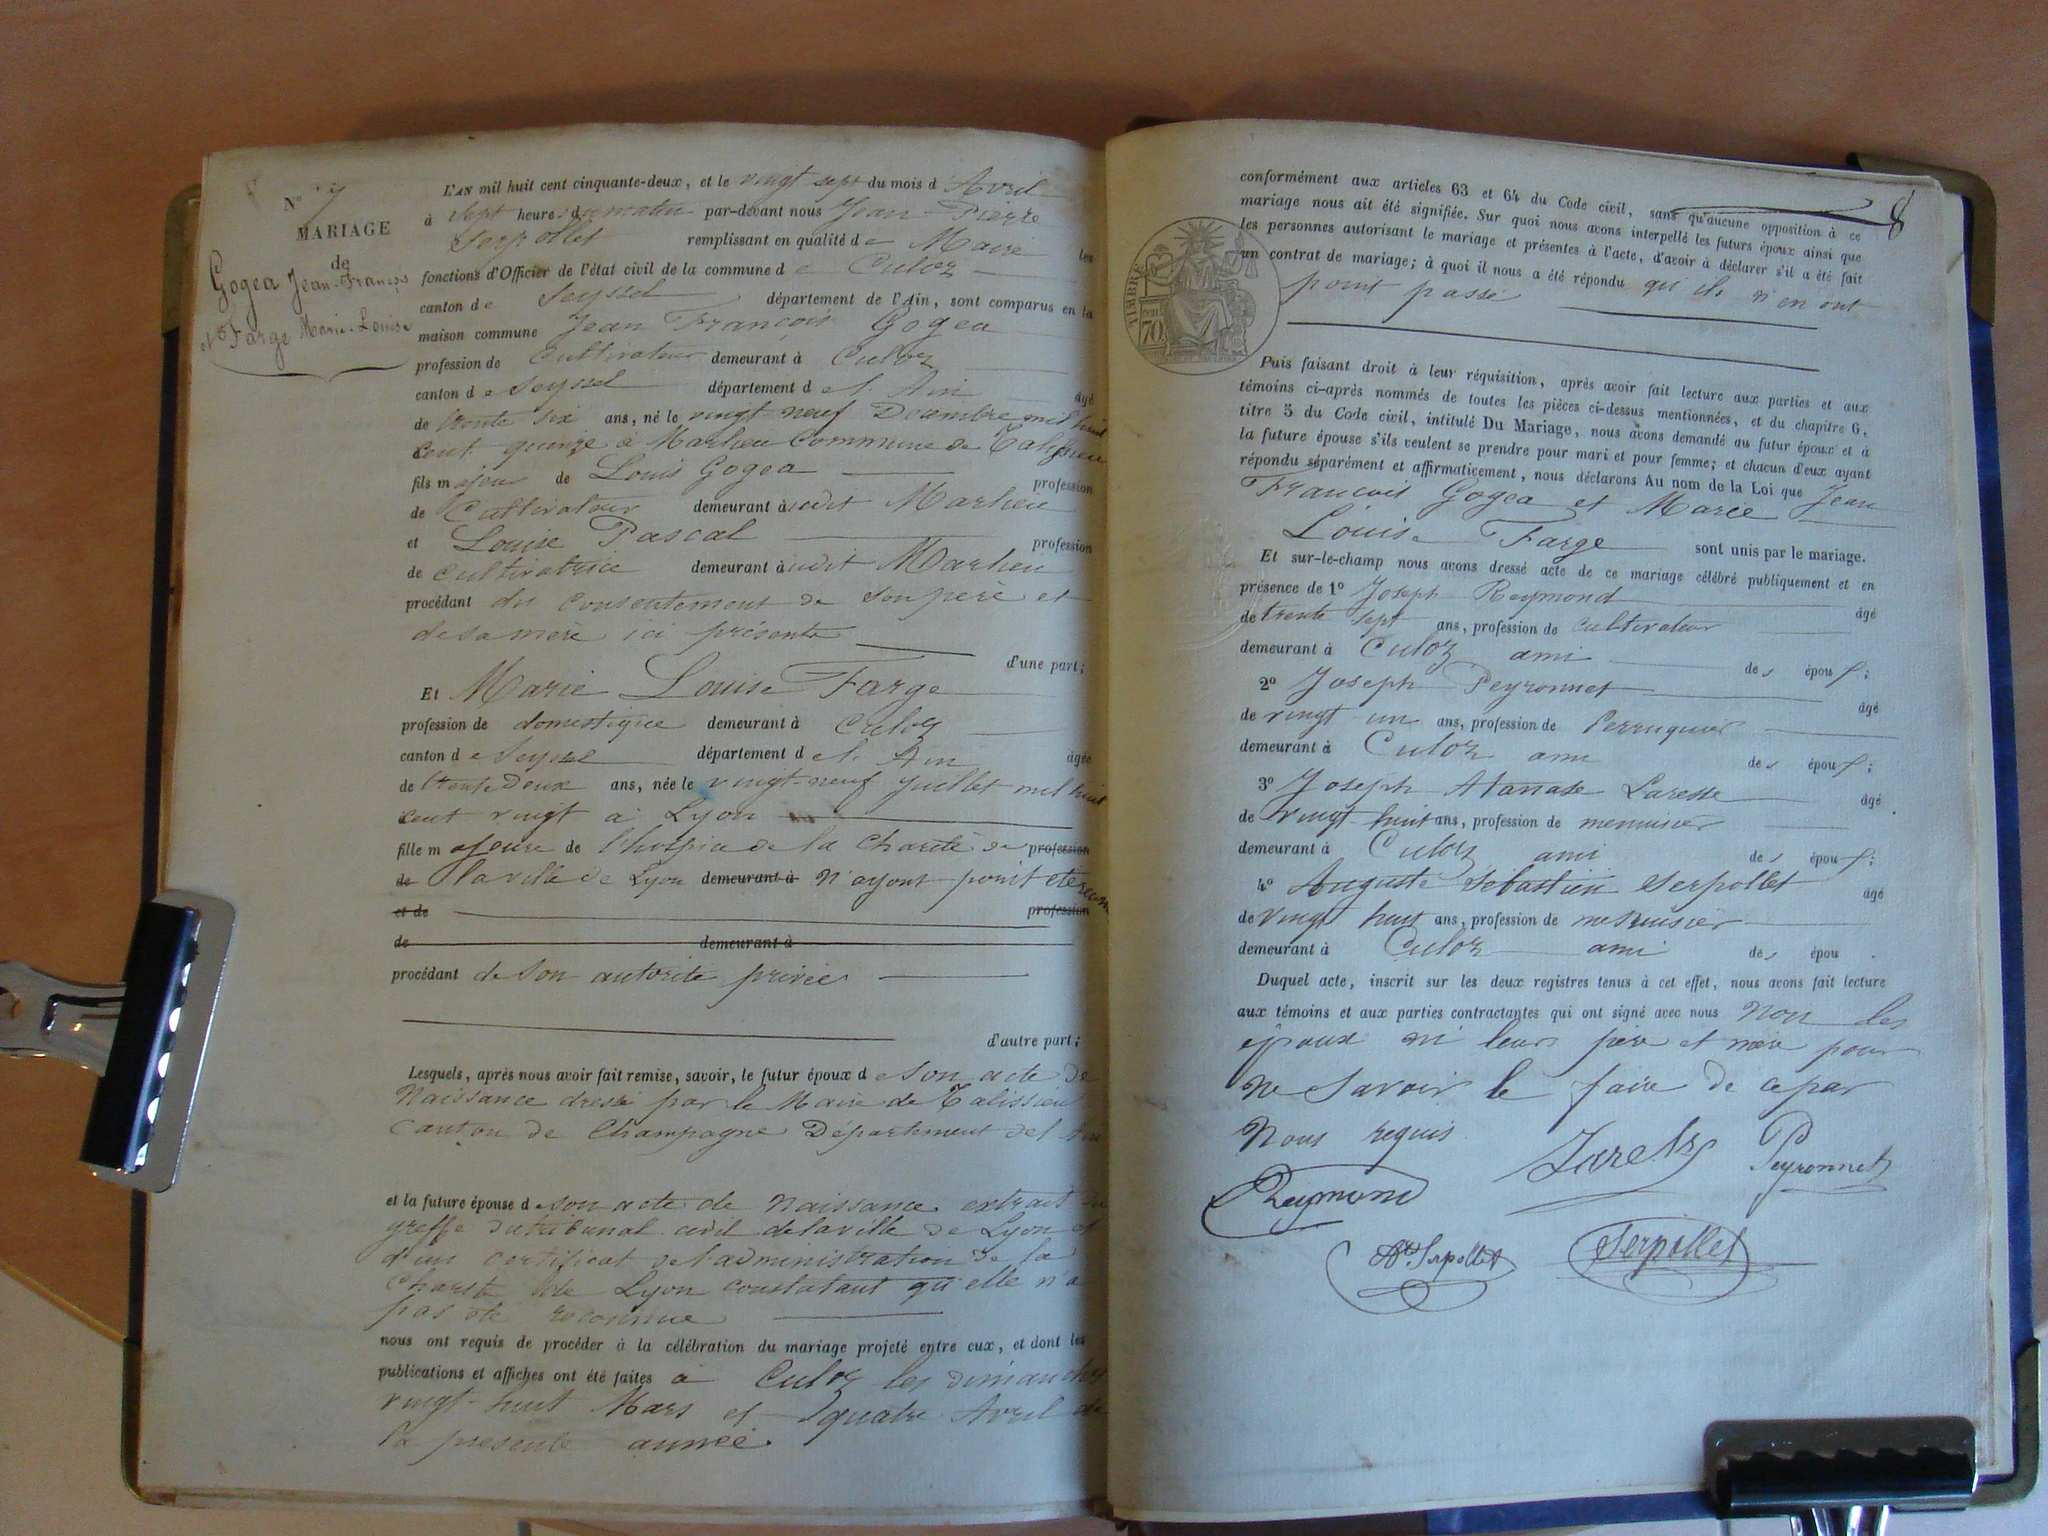 N° 7
MARIAGE
de
Gogea Jean-François
et Farge Marie-Louise
L'AN mil huit cent cinquante-deux, et le vingt sept du mois d'Avril
à sept heures du matin par-devant nous Jean-Pierre
Serpollet remplissant en qualité de Maire les
fonctions d'Officier de l'état civil de la commune de Culoz
canton de Seyssel département de l'Ain, sont comparus en la
maison commune Jean François Gogea
profession de Cultivateur demeurant à Culoz
canton de Seyssel département de l'Ain âgé
de trente six ans, né le vingt neuf Decembre mil huit
cent quinze à Marlieu Commune de Talissieu
fils majeur de Louis Gogea profession
de Cultivateur demeurant à udit Marlieu
et Louise Pascal profession
de cultivatrice demeurant à udit Marlieu
procédant du consentement de son père et
de sa mère ici présents
d'une part;
Et Marie Louise Farge
profession de domestique demeurant à Culoz
canton de Seyssel département de l'Ain âgée
de trente Deux ans, née le vingt-neuf Juillet mil huit
cent vingt à Lyon
fille majeure de l'hospice de la Charité de profession
de la ville de Lyon demeurant à n'ayant point été reconnue
et de profession
de demeurant à
procédant de son autorité privée
d'autre part;
Lesquels, après nous avoir fait remise, savoir, le futur époux de son acte de
Naissance dressé par le Maire de Talissieu
Canton de Champagne Département de l'Ain
et la future épouse de son acte de Naissance extrait du
greffe du tribunal civil de la ville de Lyon et
d'un certificat de l'administration de la
Charité de Lyon constatant qu'elle n'a
pas été reconnue
nous ont requis de procéder à la célébration du mariage projeté entre eux, et dont les
publications et affiches ont été faites à Culoz les dimanches
vingt-huit Mars et quatre Avril de
la présente année.
8
conformément aux articles 63 et 64 du Code civil, sans qu'aucune opposition à ce
mariage nous ait été signifiée. Sur quoi nous avons interpellé les futurs époux ainsi que
les personnes autorisant le mariage et présentes à l'acte, d'avoir à déclarer s'il a été fait
un contrat de mariage; à quoi il nous a été répondu qu'ils n'en ont
point passé
TIMBRE
70
Puis faisant droit à leur réquisition, après avoir fait lecture aux parties et aux
témoins ci-après nommés de toutes les pièces ci-dessus mentionnées, et du chapitre 6,
titre 5 du Code civil, intitulé Du Mariage, nous avons demandé au futur époux et à
la future épouse s'ils veulent se prendre pour mari et pour femme; et chacun d'eux ayant
répondu séparément et affirmativement, nous déclarons Au nom de la Loi que Jean
François Gogea et Marie
Louise Farge sont unis par le mariage.
Et sur-le-champ nous avons dressé acte de ce mariage célébré publiquement et en
présence de 1° Joseph Reymond âgé
de trente sept ans, profession de cultivateur
demeurant à Culoz ami des époux;
2° Joseph Peyronnet âgé
de vingt un ans, profession de Perruquier
demeurant à Culoz ami des époux;
3° Joseph Atanase âgé
de vingt huit ans, profession de menuisier
demeurant à Culoz ami des époux;
4° Auguste Sébastien Serpollet âgé
de vingt huit ans, profession de menuisier
demeurant à Culoz ami des épou
Duquel acte, inscrit sur les deux registres tenus à cet effet, nous avons fait lecture
aux témoins et aux parties contractantes qui ont signé avec nous Non les
époux ni leurs père et mère pour
ne savoir le faire de ce par
Nous requis.
Peyronnet
Reymond
Serpollet
Serpollet